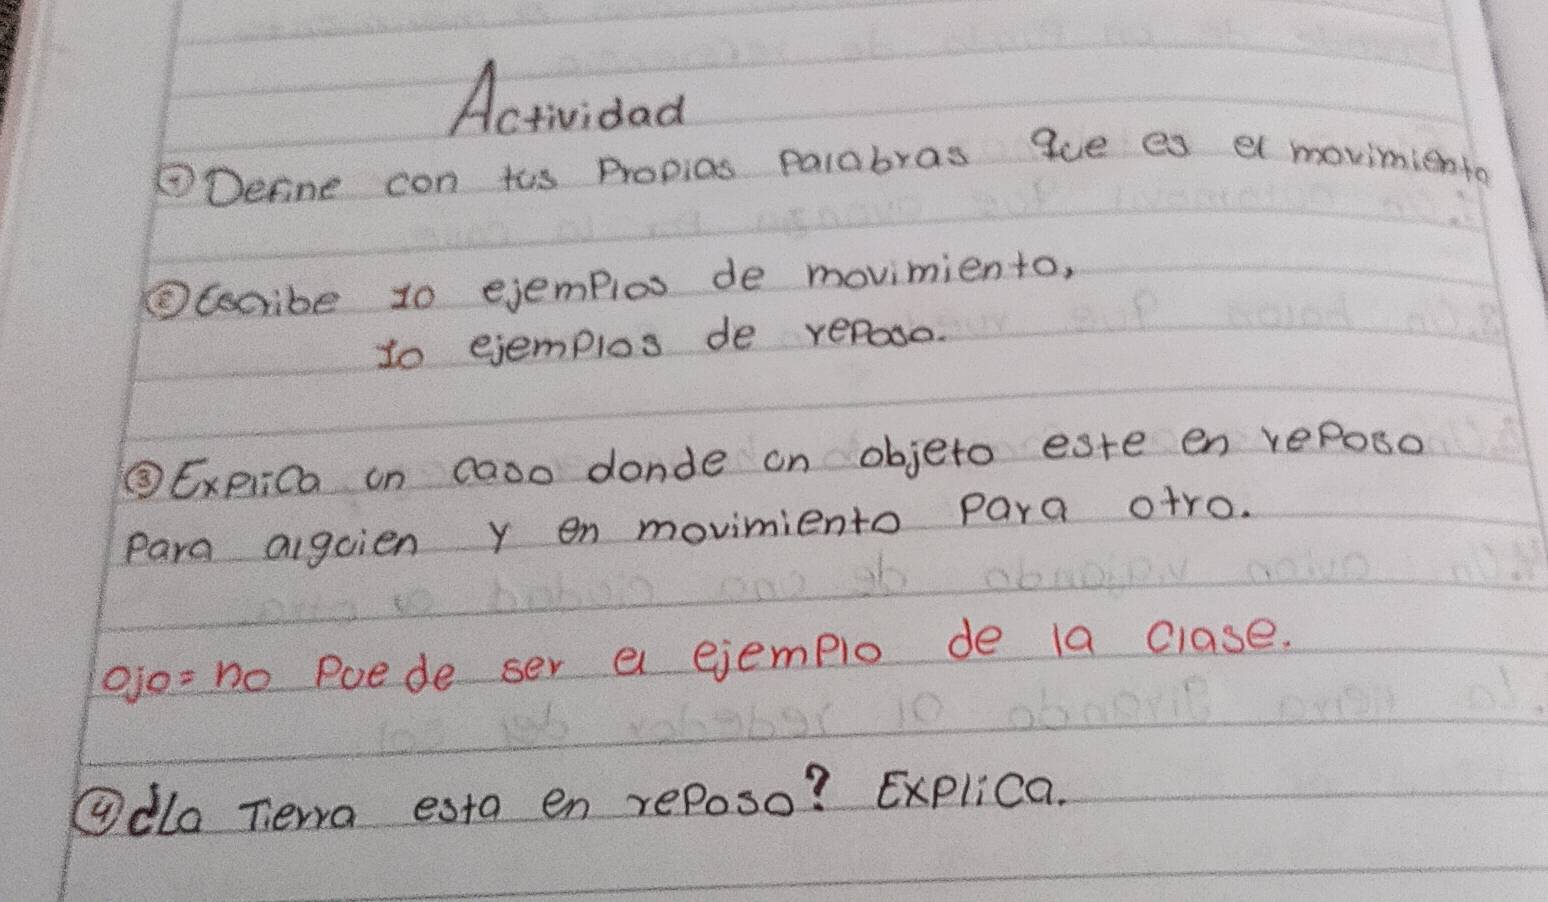 Actividad
① Define con tus Propias palabras que es el movimiento
② Escribe 10 ejemplos de movimiento,
10 ejemplos de reposo.
③ Explica un caso donde un objeto este en reposo
Para alguien y en movimiento para otro.
Ojo = no Puede ser el ejemplo de la clase.
④ ¿La Tierra esta en reposo? Explica.